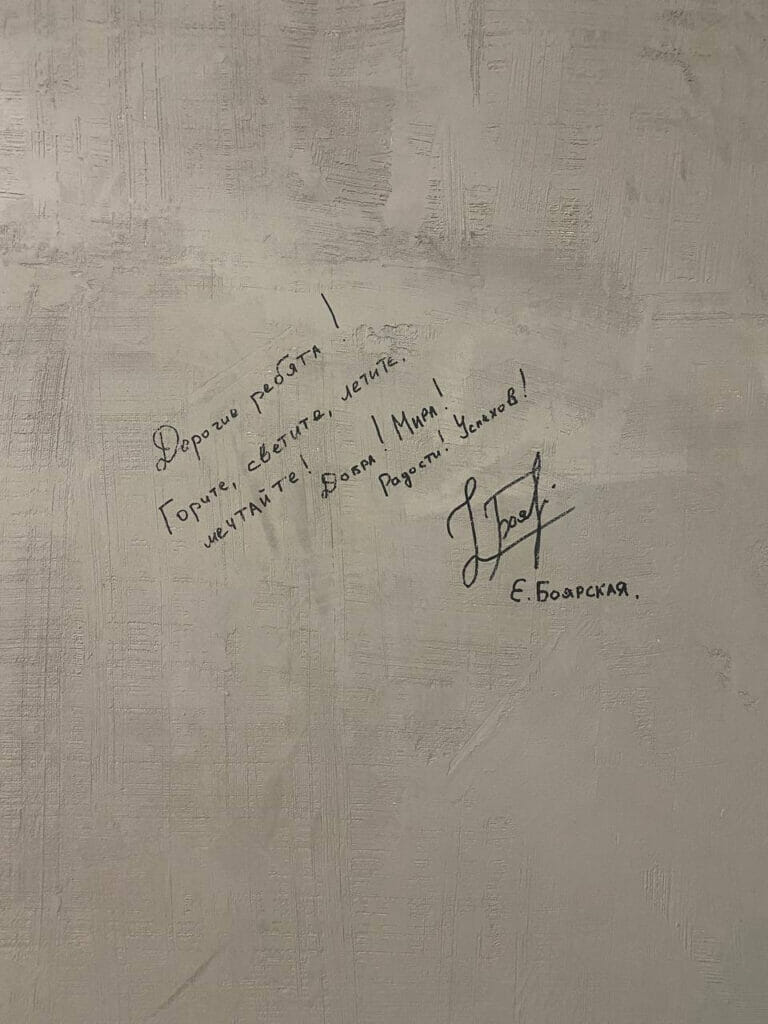 Дорогие ребята!
Горите, светите, летите,
мечтайте! Добра! Мира!
Радости! Успехов!
Бояр.
Е. Боярская.